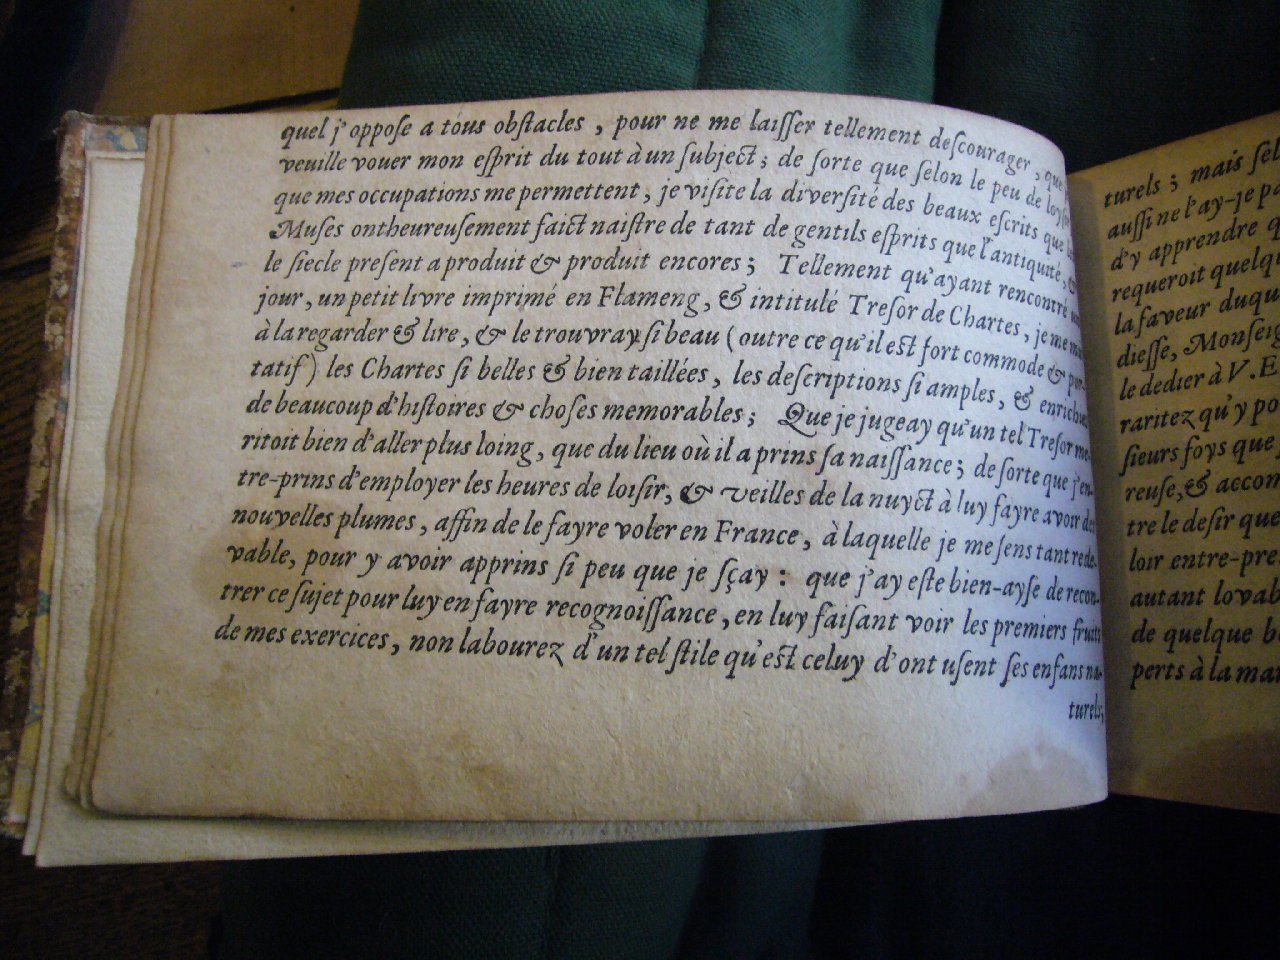 quel j'oppose a tous obstacles, pour ne me laisser tellement descourager, que
veuille vouer mon esprit du tout à un subject; de sorte que selon le peu de
que mes occupations me permettent, je visite la diversité des beaux escrits que
Muses ontheureusement faict naistre de tant de gentils esprits que l'antiquité, &
le siecle present a produit & produit encores; Tellement qu'ayant rencontré un
jour, un petit livre imprimé en Flameng, & intitulé Tresor de Chartes, je me
à la regarder & lire, & le trouvray si beau (outre ce qu'il est fort commode & por-
tatif) les Chartes si belles & bien taillées, les descriptions si amples, & enrichies
de beaucoup d'histoires & choses memorables; Que je jugeay qu'un tel Tresor me-
ritoit bien d'aller plus loing, que du lieu où il a prins sa naissance; de sorte que j'en-
tre-prins d'employer les heures de loisir, & veilles de la nuyct à luy fayre avoir des
nouvelles plumes, affin de le fayre voler en France, à laquelle je me sens tant rede-
vable, pour y avoir apprins si peu que je sçay: que j'ay este bien-ayse de recon-
trer ce sujet pour luy en fayre recognoissance, en luy faisant voir les premiers fruits
de mes exercices, non labourez d'un tel stile qu'est celuy d'ont usent ses enfans na-
turels;
turels; mais
aussi ne l'ay-je
d'y apprendre
requeroit
la faveur
diesse,
le dedier à V.
raritez qu'y
sieurs foys que
reuse, &
tre le desir que
loir
autant
de quelque
perts à la